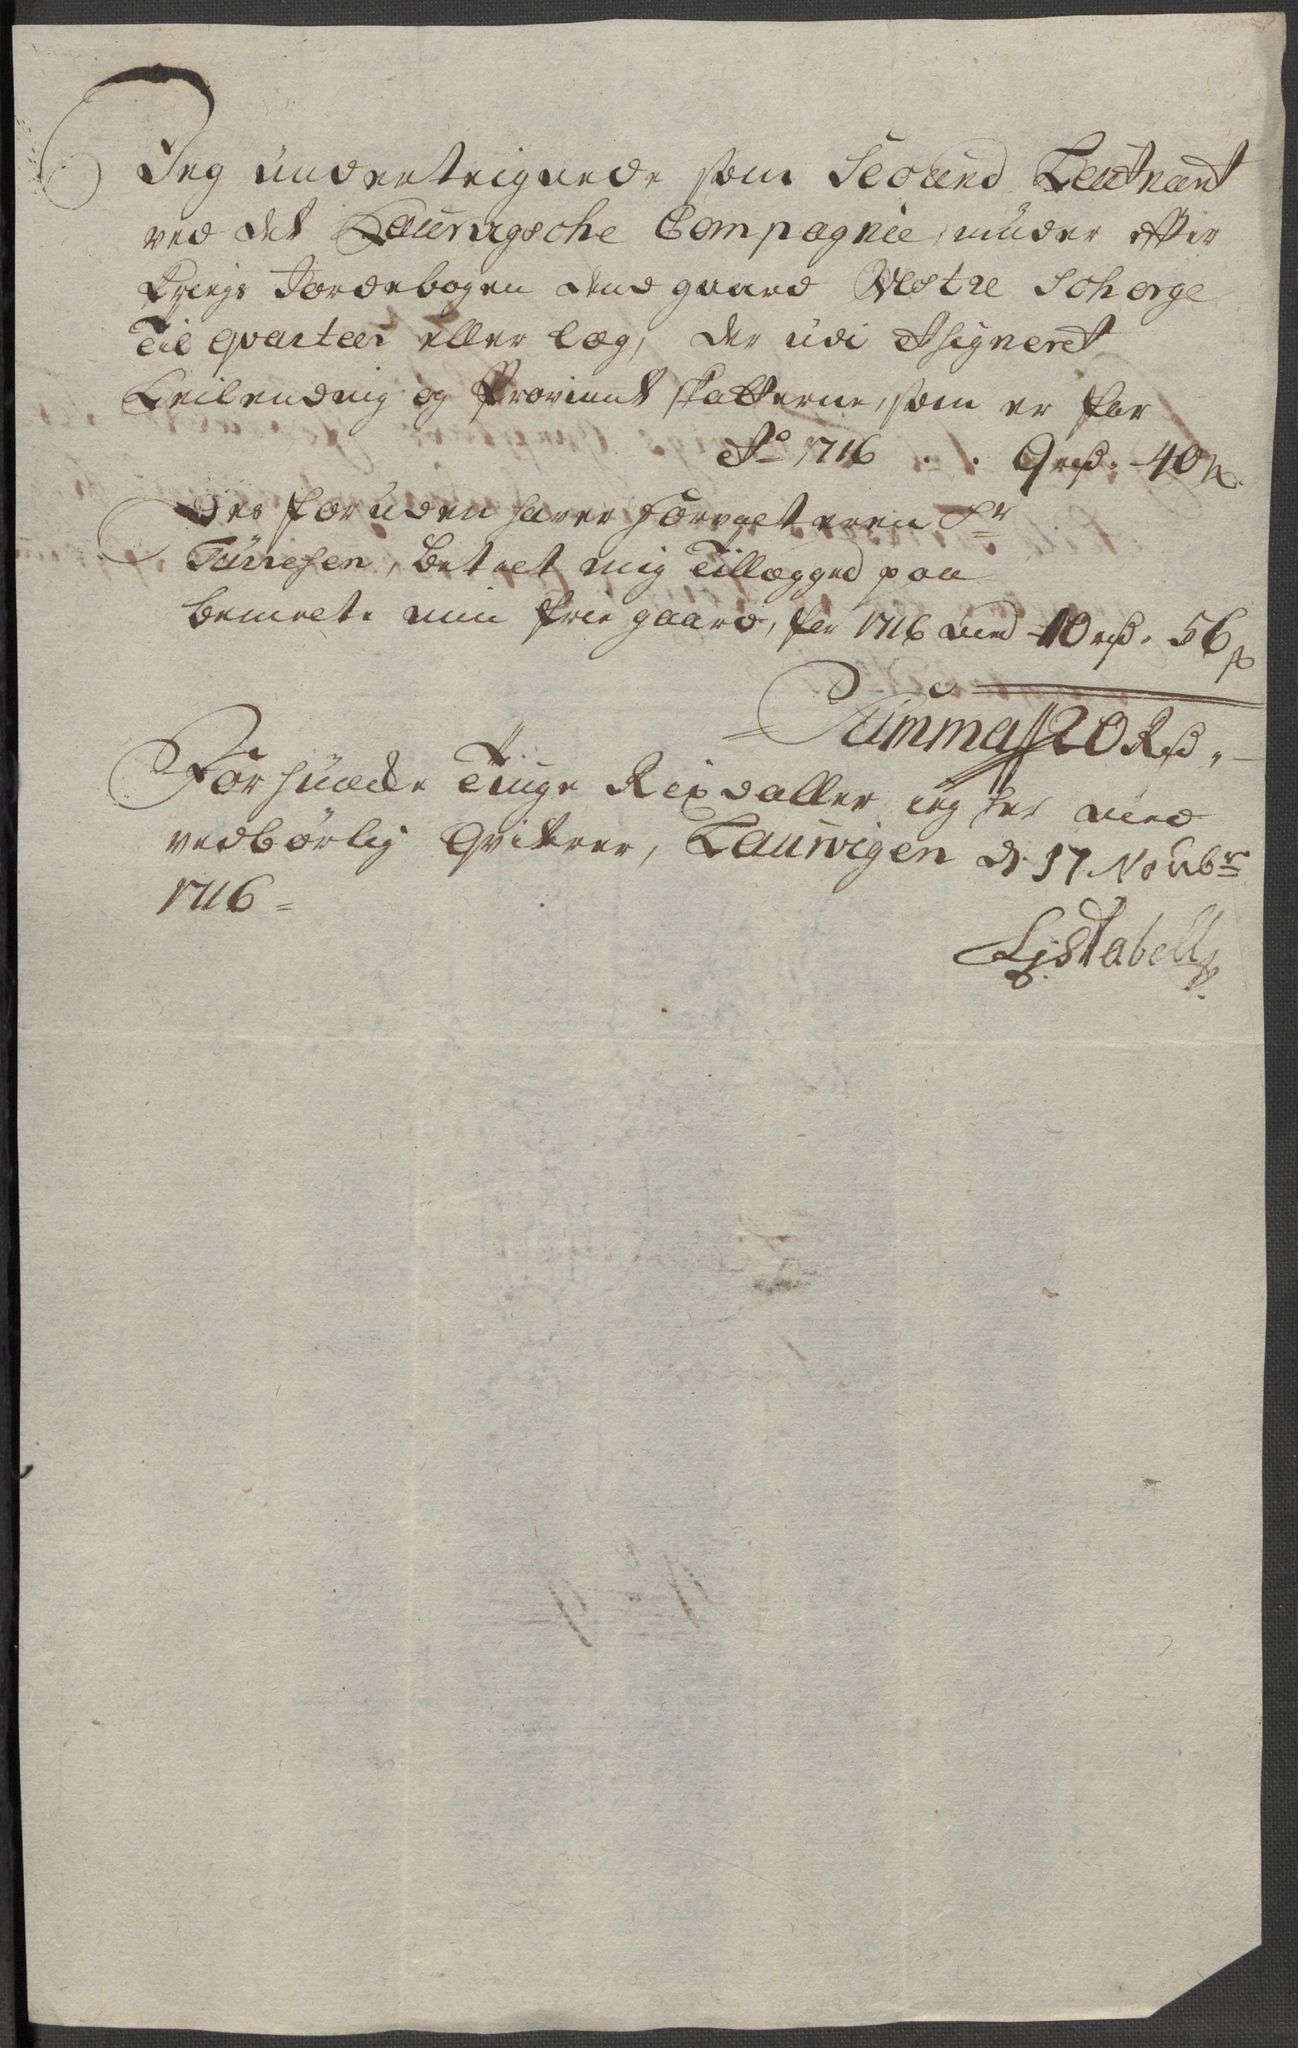 Jeg underteignede som Secund Leutnant
ved det Laurvigsche Compagnie, nÿder effter
Krigs Jordebogen dend gaard Westre Schorge
Til qvarteer eller læg, der udi Assigneret
Leilending og Proviant skatterne, som er for
Ao 1716 . . 9 rd. 40 s
Des foruden haver Forvalteren Sr
Tünchen, betalt mig Tillægged paa
bemelte min frie gaard, for 1716 med 10 rd. 56 s
Summa 20 Rd.
For hvilcke Tiuge Rixdaller ieg her med
vedbørlig qviterer, Laurvigen d. 17 Novbr
1716
Stabell